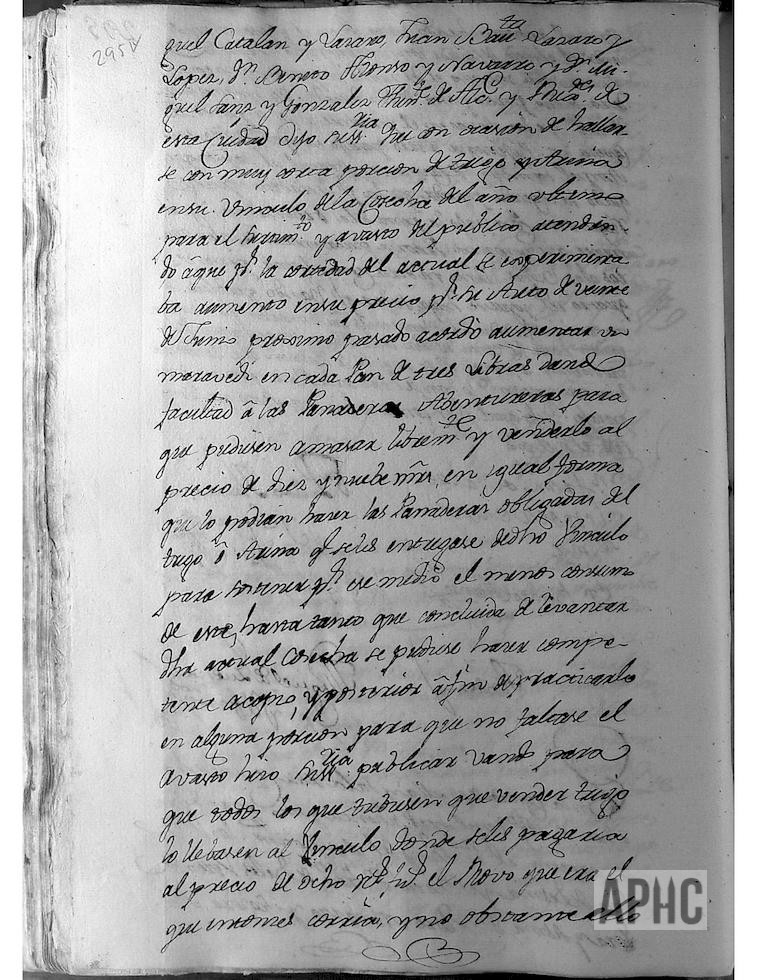 295v
guel Catalan y Lazaro, Juan Bauta Lazaro y
Lopez, Dn. Benito Alonso y Navarro y Dn. Mi-
guel Sanz y Gonzalez de Alc. y de
esta Ciudad dijo su Ssria. Que con ocasion de hallar-
se con muy corta porcion de trigo y Arina
en su Vinculo de la Cosecha del año ultimo
para el surtimto. y avasto del publico atendien-
do â que pr. la cortedad del actual se experimenta
ba aumento en su precio pr. su Auto de veinte
de Junio proximo pasado acordò aumentar un
maravedi en cada Pan de tres Libras dando
facultad â las Panaderas Abentureras para
que pudiesen amasar libremte. y venderlo al
precio de diez y nuebe mrs. en igual forma
que lo podian hacer las Panaderas obligadas del
trigo ô Arina qe. seles entregase dedho Vinculo
para sostener pr. ese medio el menos consumo
de este, hasta tanto que concluida de levantar
dha actual Cosecha se pudiese hacer compe-
tente acopio, y posterior â fin de practicarlo
en alguna porcion para que no faltase el
avasto hizo su Ssria. publicar vando para
que todos los que tubiesen que vender trigo
lo llebasen al Vinculo donde seles pagaria
al precio de ocho rs. el Rovo que era el
que entonces corria, y no obstante ello
APHC